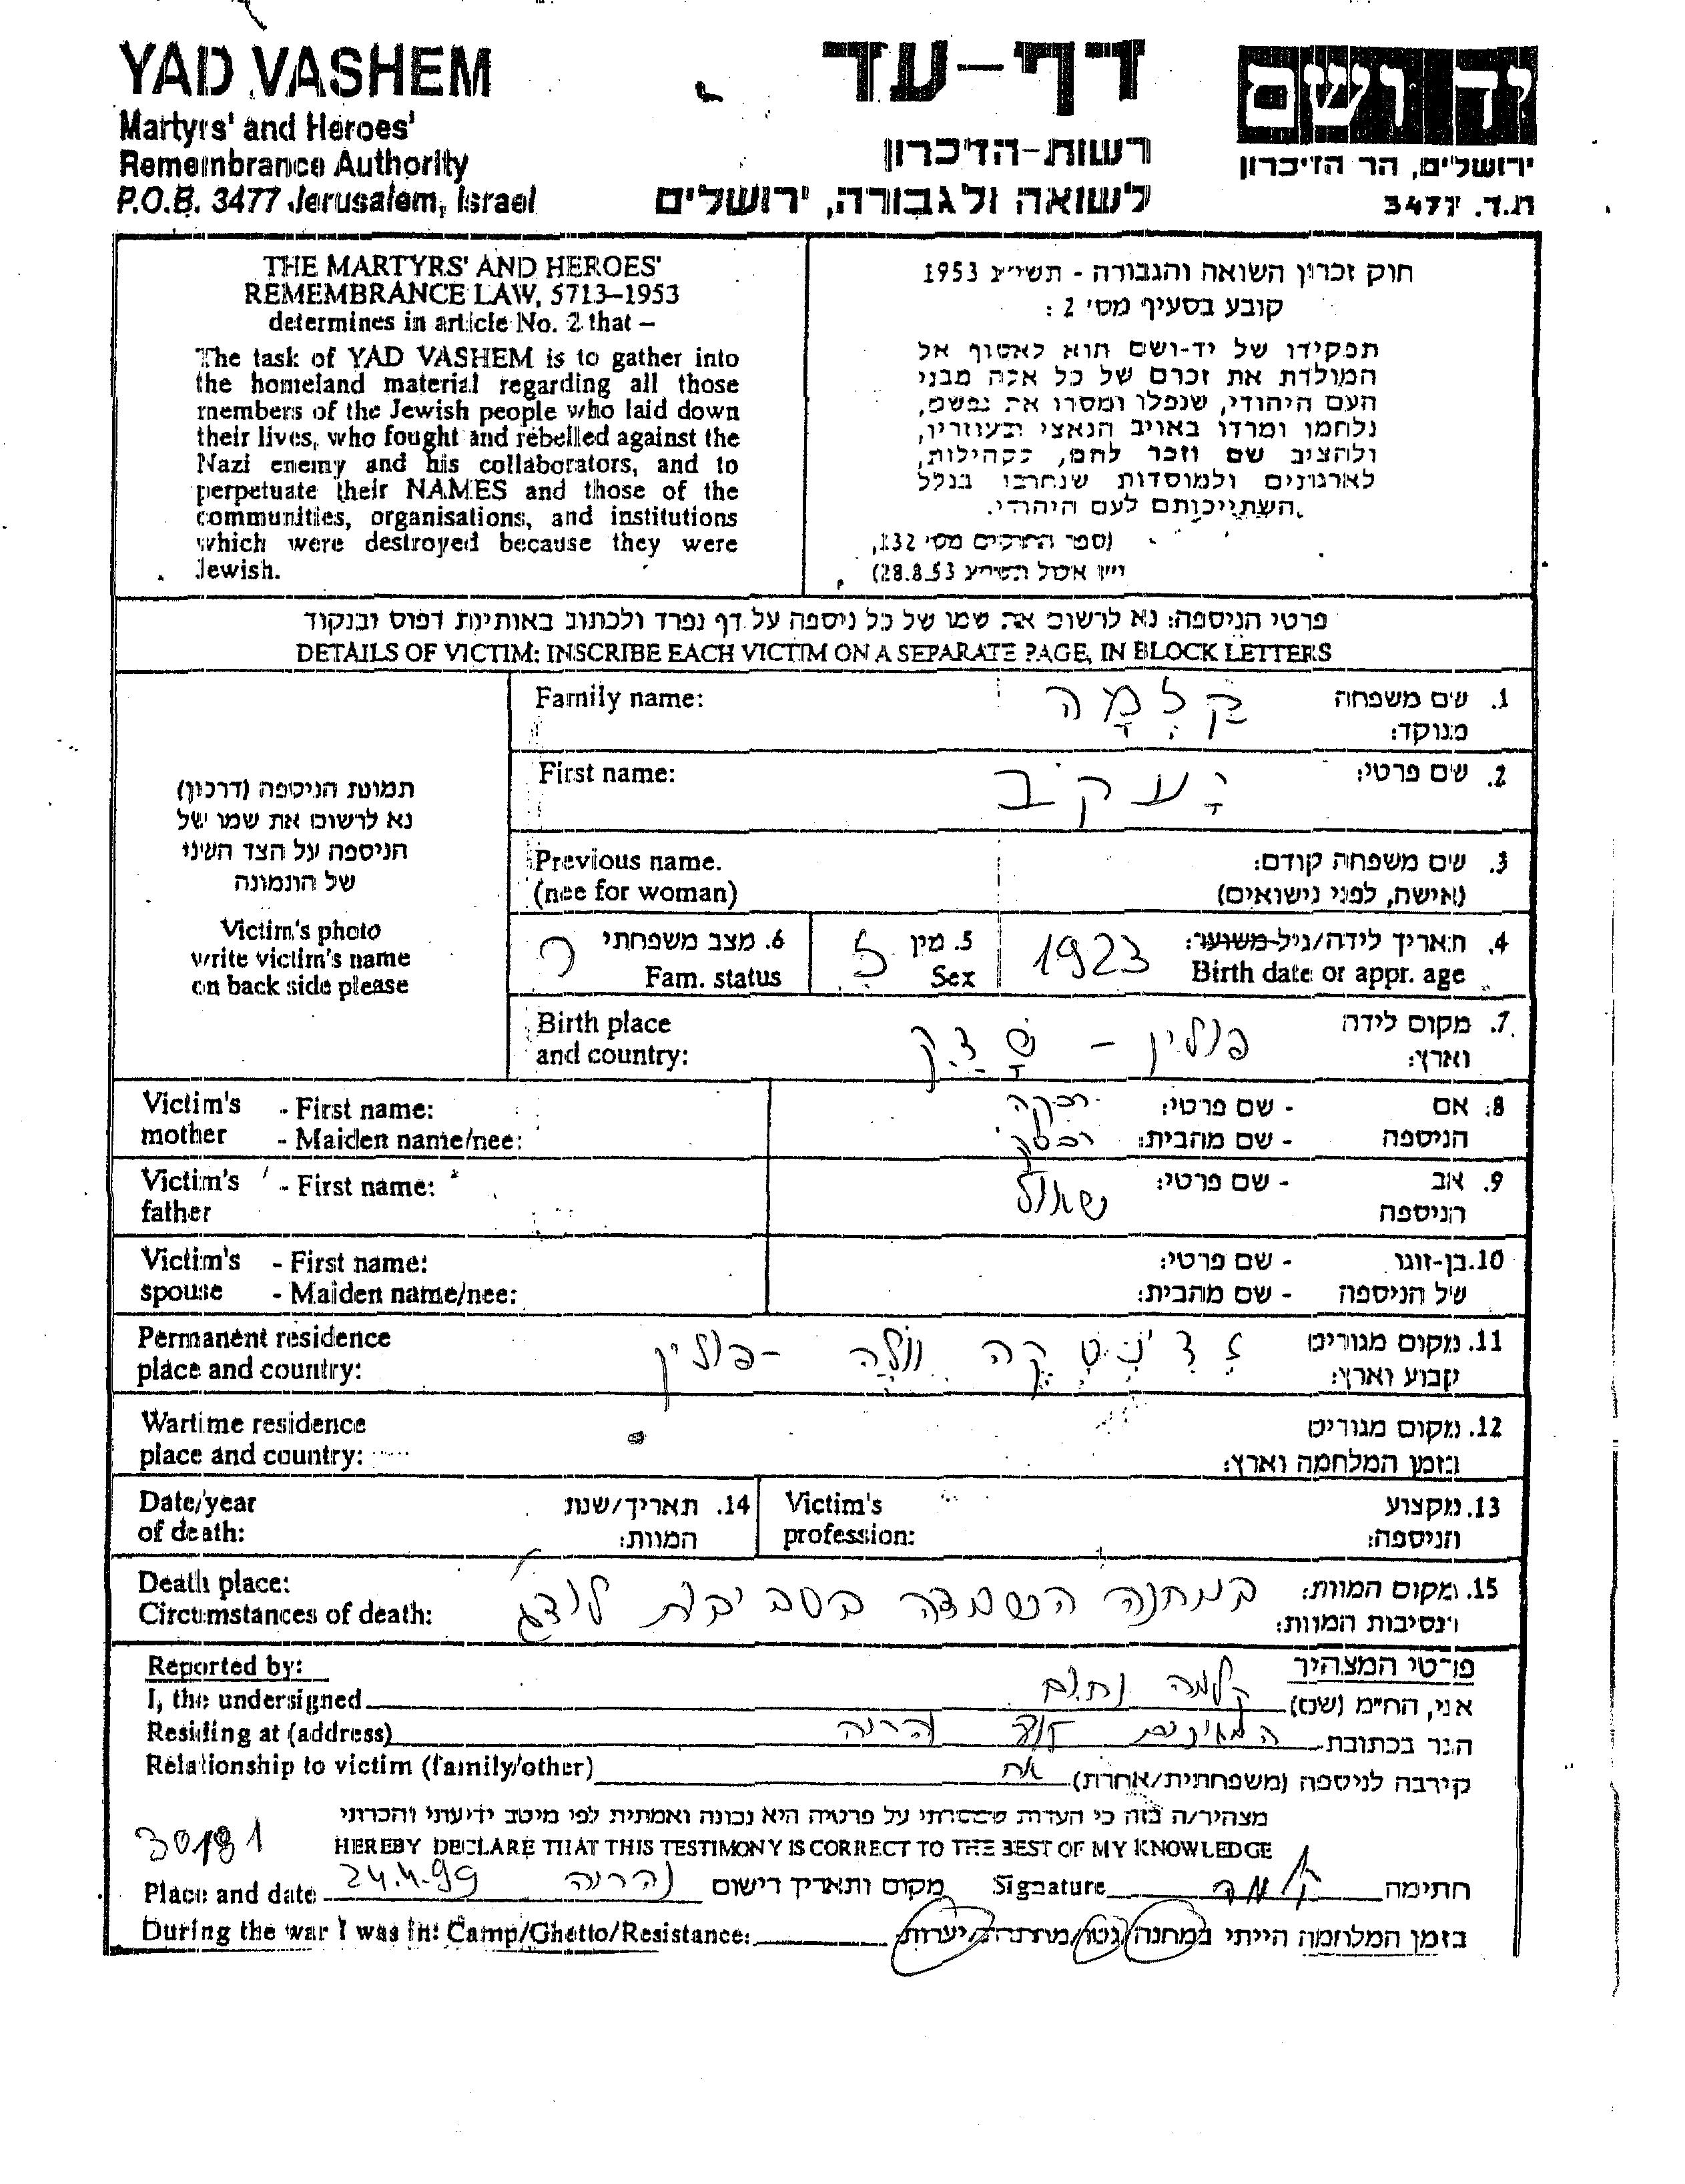 YAD VASHEM
Martyrs' and Heroes'
Remembrance Authority
P.O.B. 3477 Jerusalem, Israel
דף-עד
רשות-הזיכרון
לשואה ולגבורה, ירושלים
יד ושם
ירושלים, הר הזיכרון
ת.ד. 3477
THE MARTYRS' AND HEROES'
REMEMBRANCE LAW, 5713–1953
determines in article No. 2 that –
The task of YAD VASHEM is to gather into
the homeland material regarding all those
members of the Jewish people who laid down
their lives, who fought and rebelled against the
Nazi enemy and his collaborators, and to
perpetuate their NAMES and those of the
communities, organisations, and institutions
which were destroyed because they were
Jewish.
חוק זכרון השואה והגבורה - תשי"ג 1953
קובע בסעיף מס' 2 :
תפקידו של יד-ושם הוא לאסוף אל
המולדת את זכרם של כל אלה מבני
העם היהודי, שנפלו ומסרו את נפשם,
נלחמו ומרדו באויב הנאצי ובעוזריו,
ולהציב שם וזכר להם, לקהילות,
לארגונים ולמוסדות שנחרבו בגלל
השתייכותם לעם היהודי.
(ספר החוקים מס' 132,
י"ז אלול תשי"ג 28.8.53)
פרטי הניספה: נא לרשום את שמו של כל ניספה על דף נפרד ולכתוב באותיות דפוס ובנקוד
DETAILS OF VICTIM: INSCRIBE EACH VICTIM ON A SEPARATE PAGE, IN BLOCK LETTERS
תמונת הניספה (דרכון)
נא לרשום את שמו של
הניספה על הצד השני
של התמונה
Victim's photo
write victim's name
on back side please
Family name: קלמה 1. שם משפחה
מנוקד:
First name: יעקב 2. שם פרטי:
Previous name. 3. שם משפחה קודם:
(nee for woman) (אישה, לפני נישואים)
6. מצב משפחתי ר 5. מין ז 1923 4. תאריך לידה/גיל משוער:
Fam. status Sex Birth date or appr. age
Birth place פולין - שדק 7. מקום לידה
and country: וארץ:
Victim's - First name: רבקה - שם פרטי: 8. אם
mother - Maiden name/nee: - שם מהבית: הניספה
Victim's - First name: שאול - שם פרטי: 9. אב
father הניספה
Victim's - First name: - שם פרטי: 10. בן-זוגו
spouse - Maiden name/nee: - שם מהבית: של הניספה
Permanent residence זדונסקה וולה - פולין 11. מקום מגורים
place and country: קבוע וארץ:
Wartime residence 12. מקום מגורים
place and country: בזמן המלחמה וארץ:
Date/year 14. תאריך/שנת Victim's 13. מקצוע
of death: המוות: profession: הניספה:
Death place: במחנה השמדה בסביבת לודג 15. מקום המוות:
Circumstances of death: ונסיבות המוות:
Reported by: פרטי המצהיר
I, the undersigned קלמה נחום אני, הח"מ (שם)
Residing at (address) נהריה הגר בכתובת
Relationship to victim (family/other) אח קירבה לניספה (משפחתית/אחרת)
מצהיר/ה בזה כי העדות שמסרתי על פרטיה היא נכונה ואמתית לפי מיטב ידיעתי והכרתי
HEREBY DECLARE THAT THIS TESTIMONY IS CORRECT TO THE BEST OF MY KNOWLEDGE
Place and date 24.4.99 נהריה מקום ותאריך רישום Signature חתימה
During the war I was in: Camp/Ghetto/Resistance: בזמן המלחמה הייתי במחנה/גטו/מחתרת/יערות